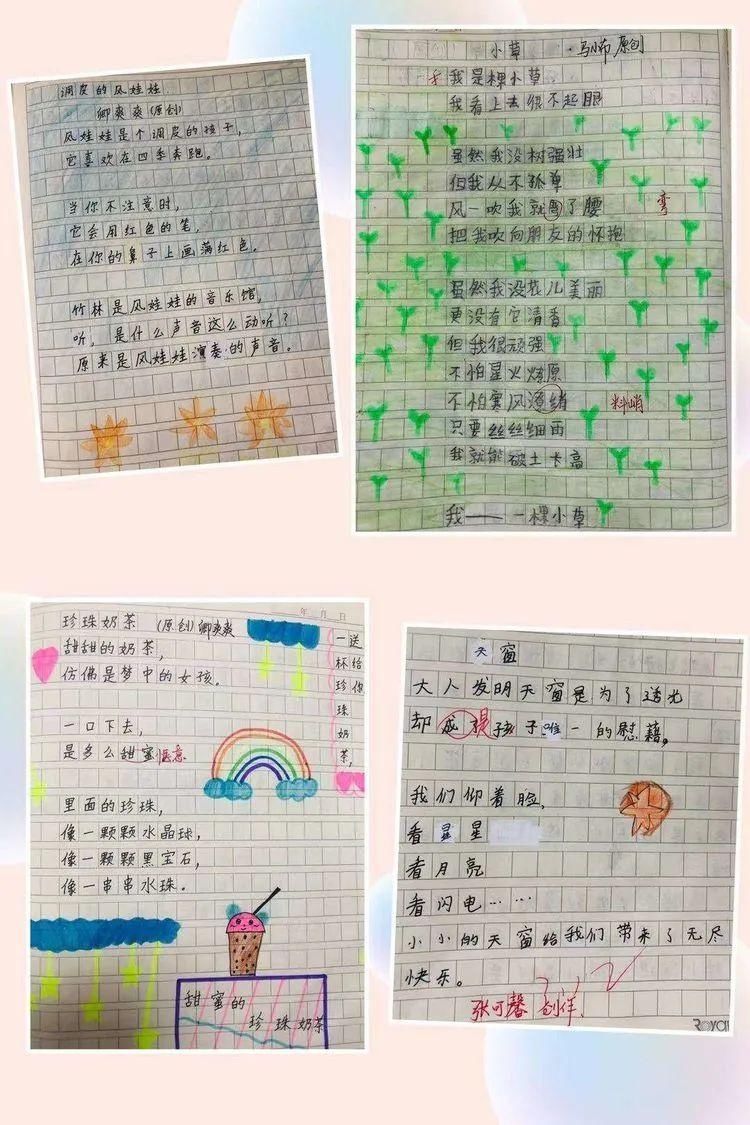 调皮的风娃娃
卿爽爽(原创)
风娃娃是个调皮的孩子,
它喜欢在四季奔跑。
当你不注意时,
它会用红色的笔,
在你的鼻子上画满红色。
竹林是风娃娃的音乐馆,
听,是什么声音这么动听?
原来是风娃娃演奏的声音。
小草 ·马小布原创
我是棵小草
我看上去很不起眼
虽然我没树强壮
但我从不孤单
风一吹我就了腰
弯
把我吹向朋友的怀抱
虽然我没花儿美丽
更没有它清香
但我很顽强
不怕星火燎原
不怕寒风
料峭
只要丝丝细雨
我就能破土长高
我——一棵小草
年 月 日
珍珠奶茶 (原创)卿爽爽
甜甜的奶茶,
仿佛是梦中的女孩。
一口下去,
是多么甜蜜惬意
里面的珍珠,
像一颗颗水晶球,
像一颗颗黑宝石,
像一串串水珠。
送给你
一杯珍珠奶茶,
甜蜜的
珍珠奶茶
天窗
大人发明天窗是为了透光
却成孩子唯一的慰藉。
我们仰着脸,
看星星
看月亮
看闪电……
小小的天窗给我们带来了无尽
快乐。
张可馨创作.